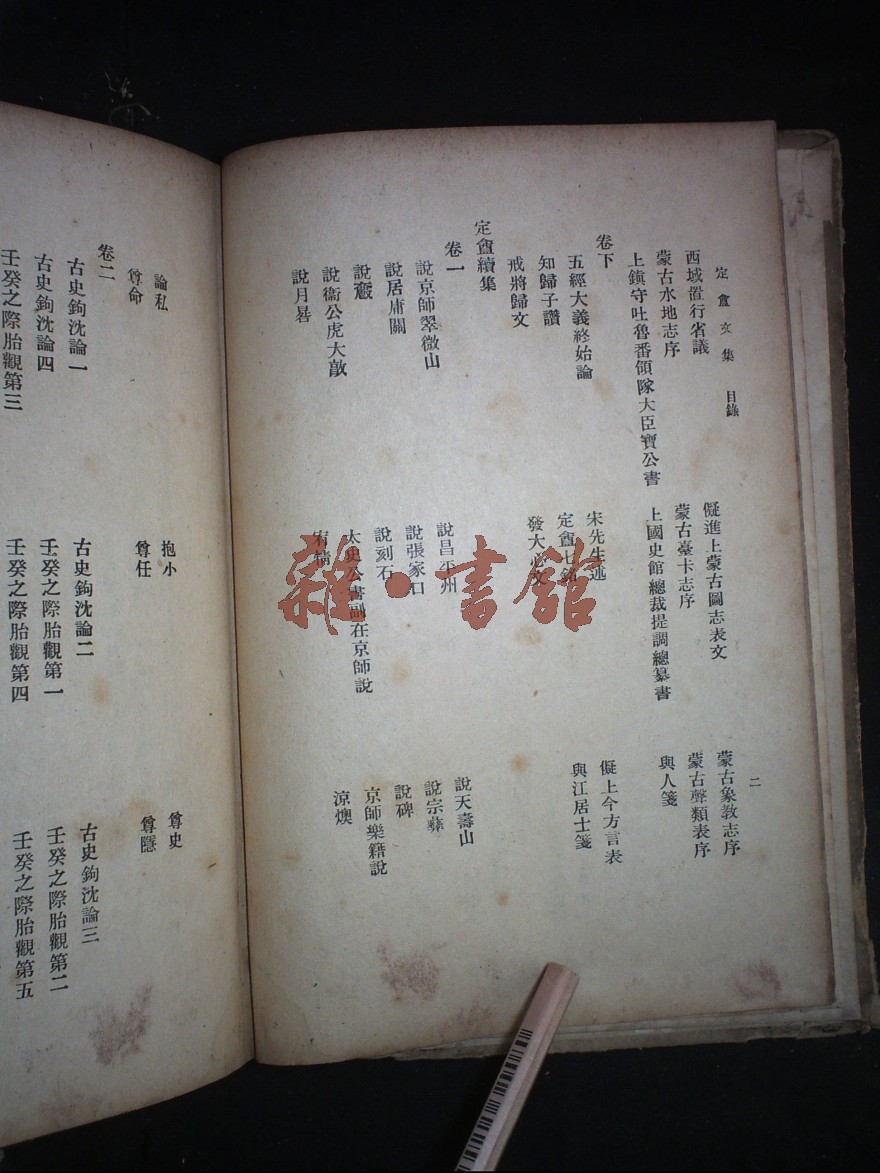 定盦文集 目錄 二
西域置行省議 儗進上蒙古圖志表文 蒙古象教志序
蒙古水地志序 蒙古臺卡志序 蒙古聲類表序
上鎮守吐魯番領隊大臣寶公書 上國史館總裁提調總纂書 與人箋
卷下
五經大義終始論 宋先生述 儗上今方言表
知歸子讚 定盦七銘 與江居士箋
戒將歸文 發大心文
定盦續集
卷一
說京師翠微山 說昌平州 說天壽山
說居庸關 說張家口 說宗彝
說 說刻石 說碑
說衞公虎大敦 太史公書副在京師說 京師樂籍說
說月晷 宥情 涼燠
論私 抱小 尊史
尊命 尊任 尊隱
卷二
古史鉤沈論一 古史鉤沈論二 古史鉤沈論三
古史鉤沈論四 壬癸之際胎觀第一 壬癸之際胎觀第二
壬癸之際胎觀第三 壬癸之際胎觀第四 壬癸之際胎觀第五
雜·書館